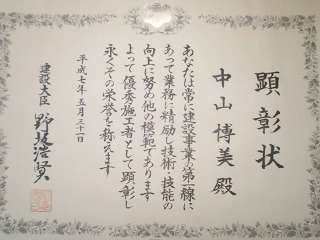 顕彰状
中山博美殿
あなたは常に建設事業の第一線に
あって業務に精励し技術・技能の
向上に努め他の模範であります
よって優秀施工者として顕彰し
永くその栄誉を称えます
平成七年五月三十一日
建設大臣 野坂浩賢